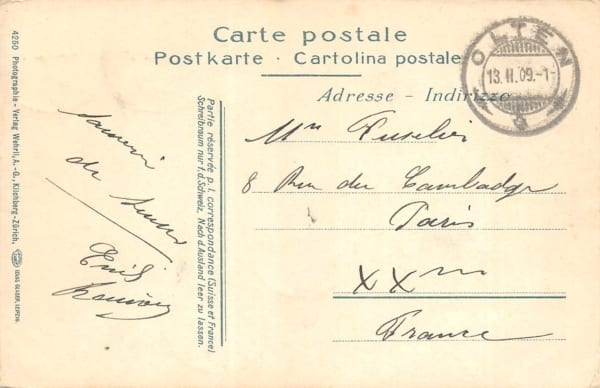 Carte postale
Postkarte - Cartolina postale
Adresse - Indirizzo
OLTEN
13. II. 09.-1-
4250 Photographie-Verlag Wehrli, A.-G., Kilchberg-Zürich.
Partie réservée p. l. correspondance (Suisse et France)
Schreibraum nur f. d. Schweiz, Nach d. Ausland leer zu lassen.
Souvenir
de
Emil
8 Rue du
Paris
XXm
France